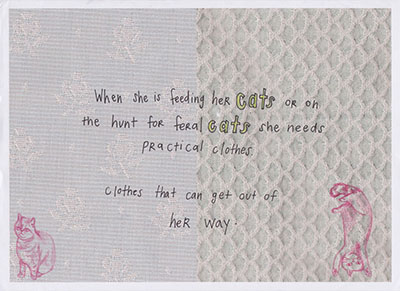 When she is feeding her cats or on
the hunt for feral cats she needs
practical clothes
clothes that can get out of
her way.